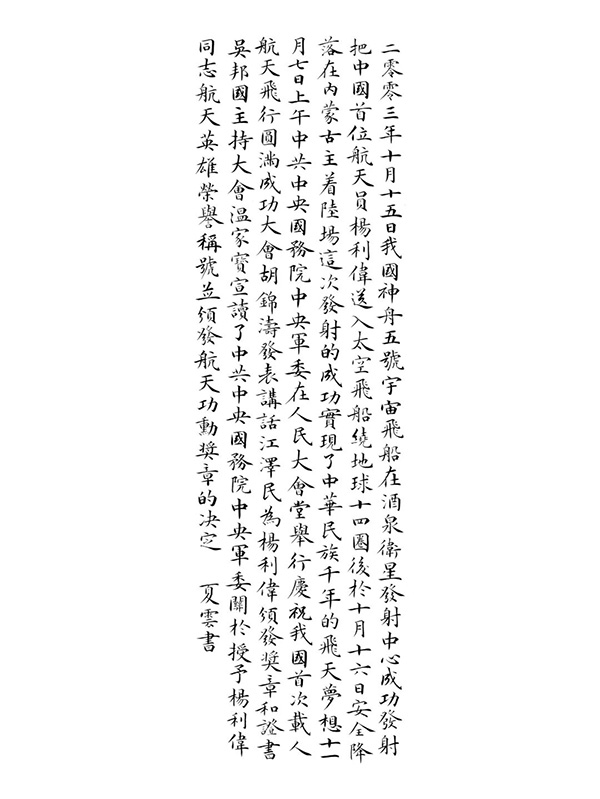 二零零三年十月十五日我國神舟五號宇宙飛船在酒泉衛星發射中心成功發射
把中國首位航天員楊利偉送入太空飛船繞地球十四圈後於十月十六日安全降
落在内蒙古主着陸場這次發射的成功實現了中華民族千年的飛天夢想十一
月七日上午中共中央國務院中央軍委在人民大會堂舉行慶祝我國首次載人
航天飛行圓滿成功大會胡錦濤發表講話江澤民為楊利偉頒發獎章和證書
吳邦國主持大會溫家寶宣讀了中共中央國務院中央軍委關於授予楊利偉
同志航天英雄榮譽稱號並頒發航天功勳獎章的決定 夏雲書